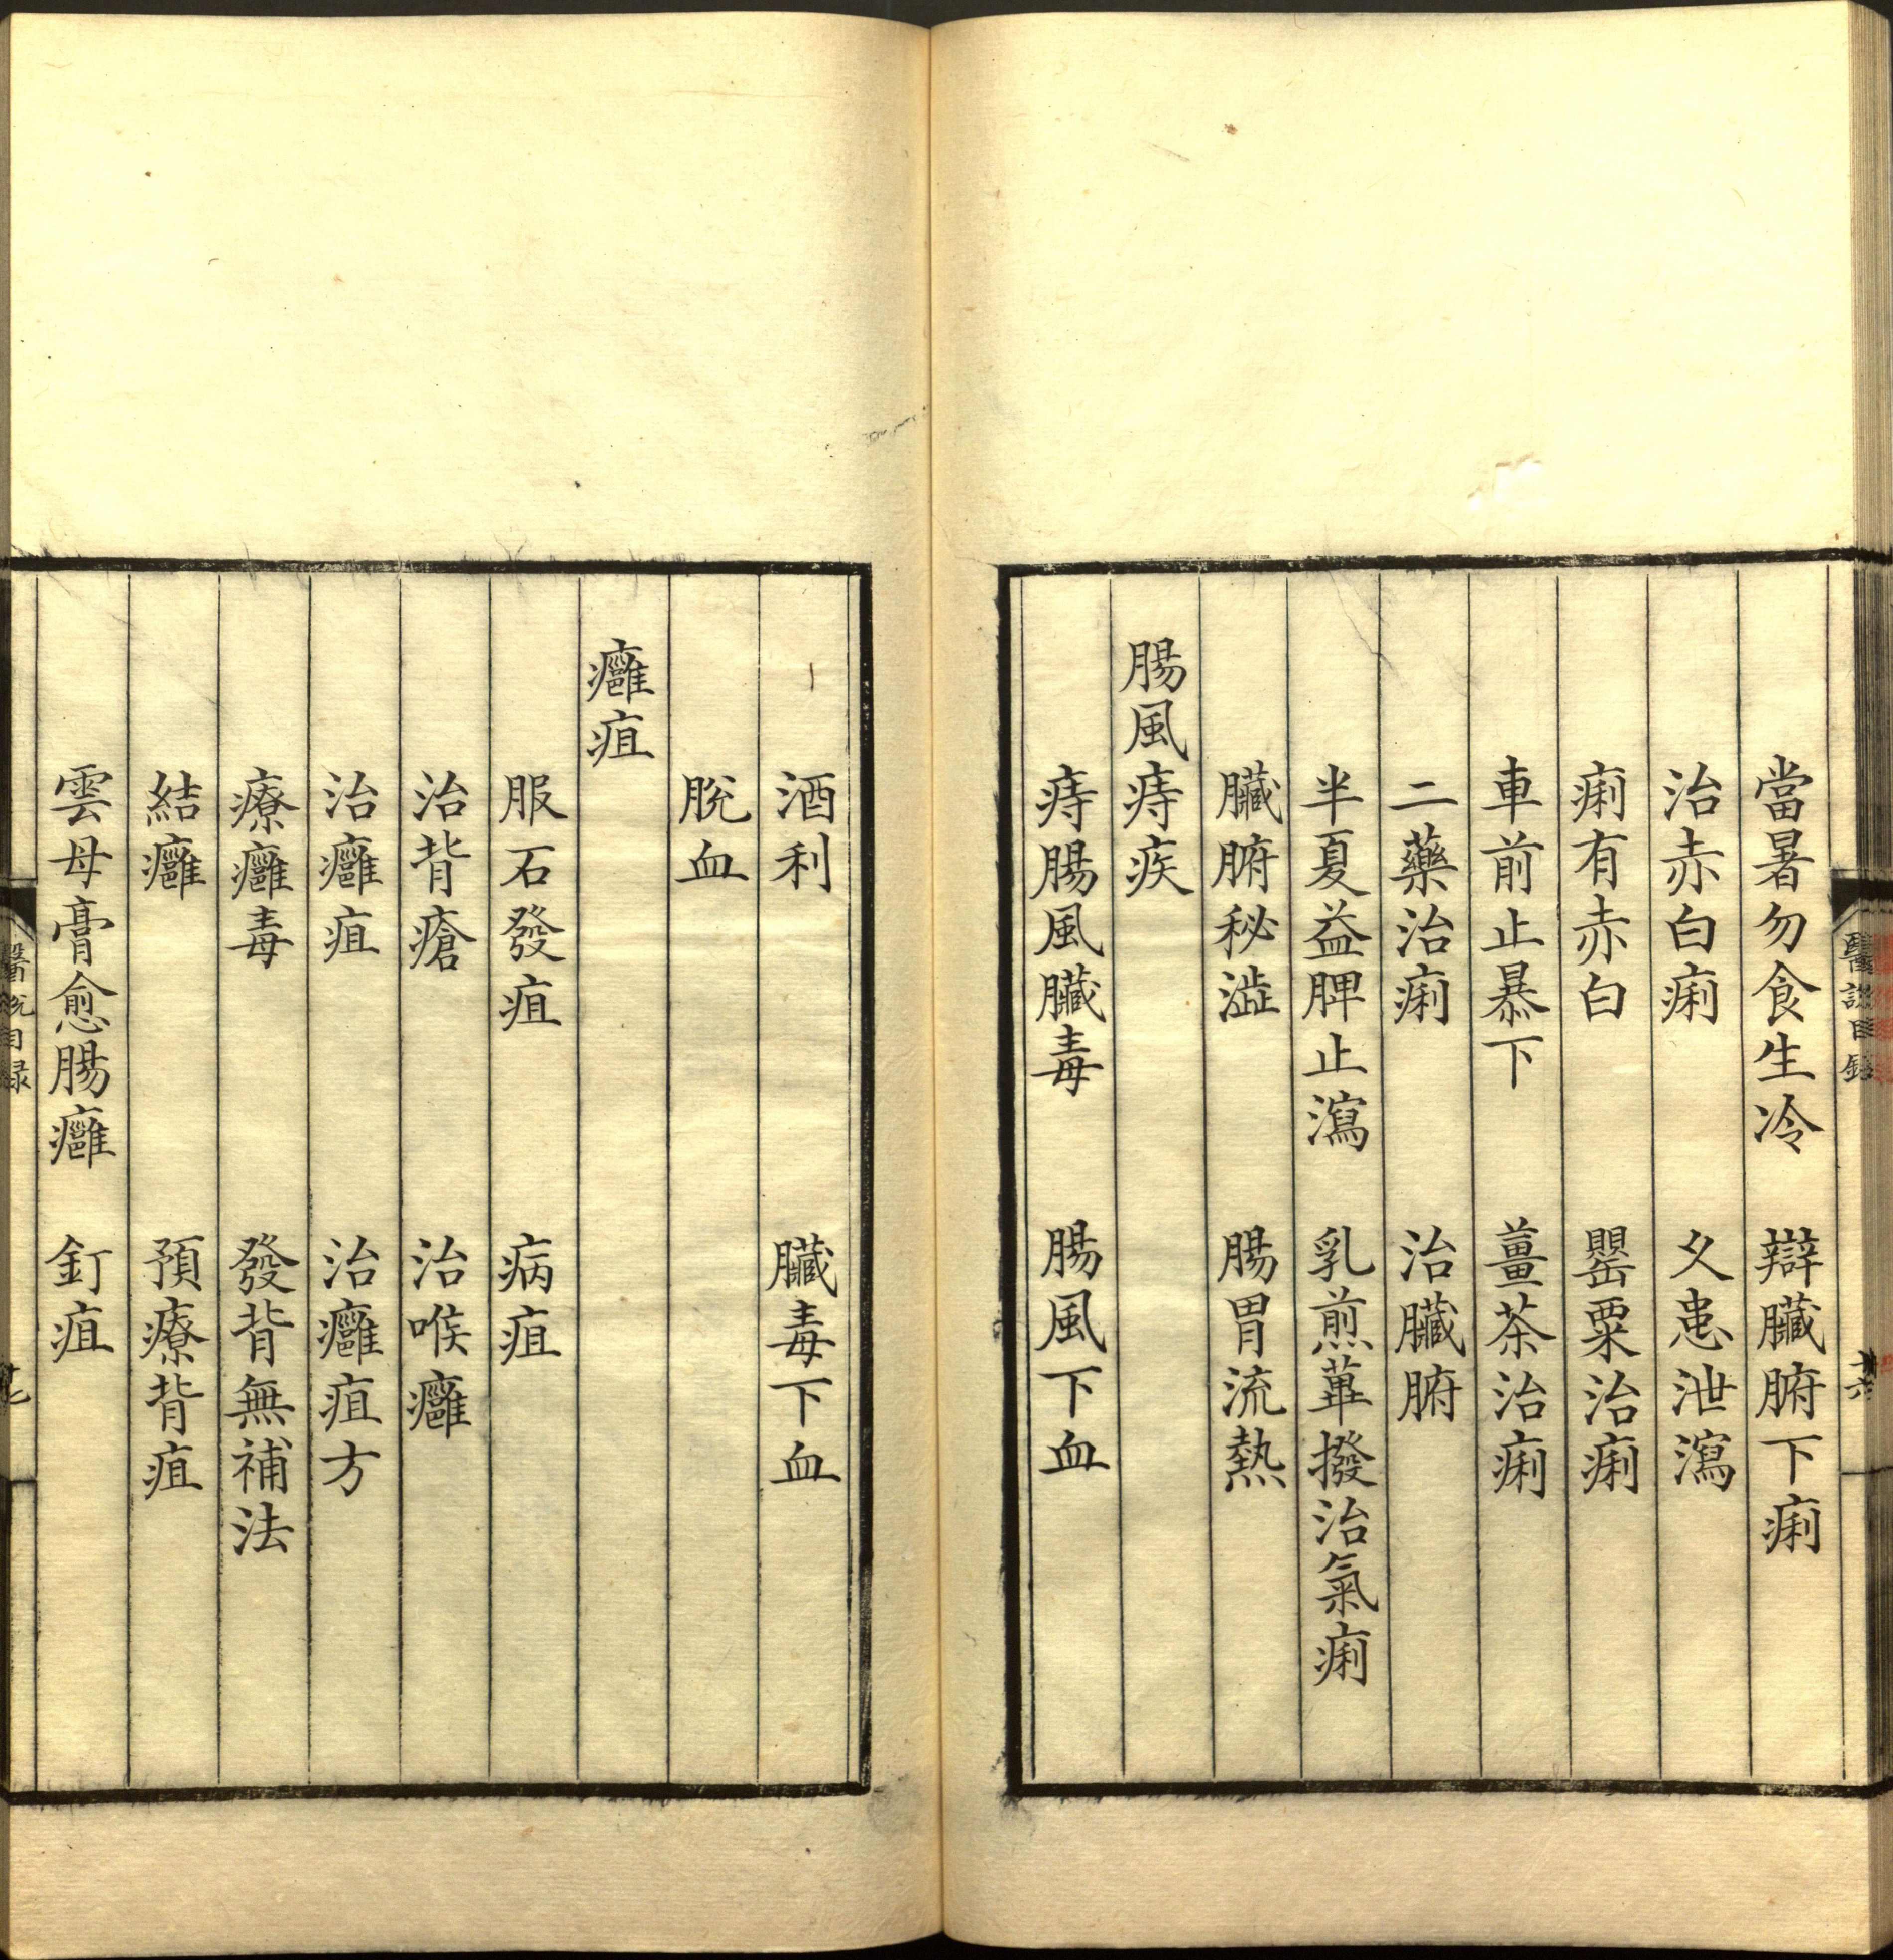 當暑勿食生冷　辯臟腑下痢
治赤白痢　久患泄瀉
痢有赤白　罌粟治痢
車前止暴下　薑茶治痢
二藥治痢　治臟腑
半夏益脾止瀉　乳煎蓽撥治氣痢
臟腑秘澁　腸胃流熱
腸風痔疾
痔腸風臟毒　腸風下血
酒利　臟毒下血
脫血
癰疽
服石發疽　病疽
治背瘡　治喉癰
治癰疽　治癰疽方
療癰毒　發背無補法
結癰　預療背疽
雲母膏愈腸癰　釘疽
醫說目録